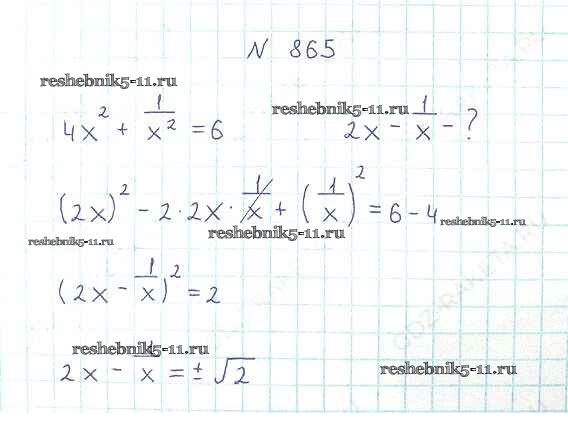 N 865
reshebnik5-11.ru
4x² + 1/x² = 6
reshebnik5-11.ru
2x - 1/x - ?
(2x)² - 2 · 2x · 1/x + (1/x)² = 6 - 4
reshebnik5-11.ru
reshebnik5-11.ru
reshebnik5-11.ru
(2x - 1/x)² = 2
reshebnik5-11.ru
2x - 1/x = ± √2
reshebnik5-11.ru